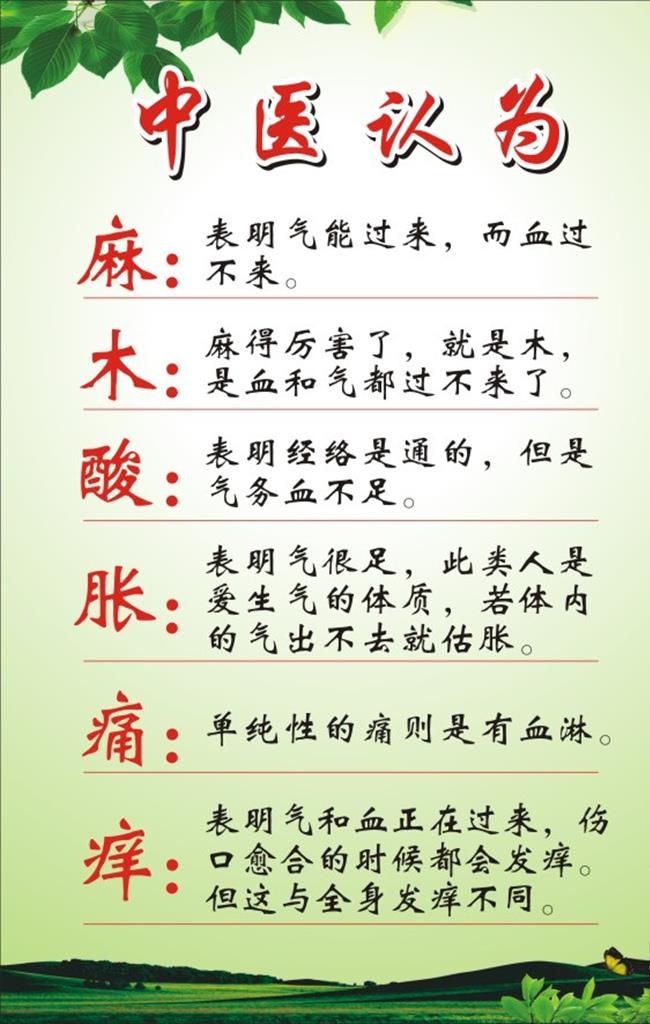 中医认为
麻：表明气能过来，而血过
不来。
木：麻得厉害了，就是木，
是血和气都过不来了。
酸：表明经络是通的，但是
气务血不足。
胀：表明气很足，此类人是
爱生气的体质，若体内
的气出不去就估胀。
痛：单纯性的痛则是有血淋。
痒：表明气和血正在过来，伤
口愈合的时候都会发痒。
但这与全身发痒不同。